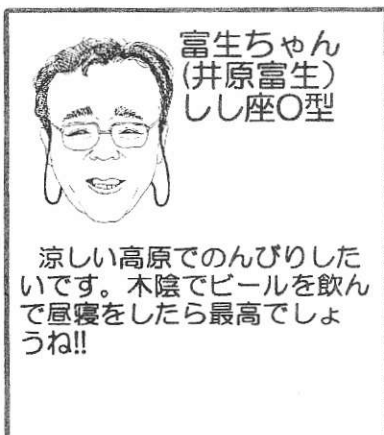 富生ちゃん
(井原富生)
しし座O型
涼しい高原でのんびりした
いです。木陰でビールを飲ん
で昼寝をしたら最高でしょ
うね!!